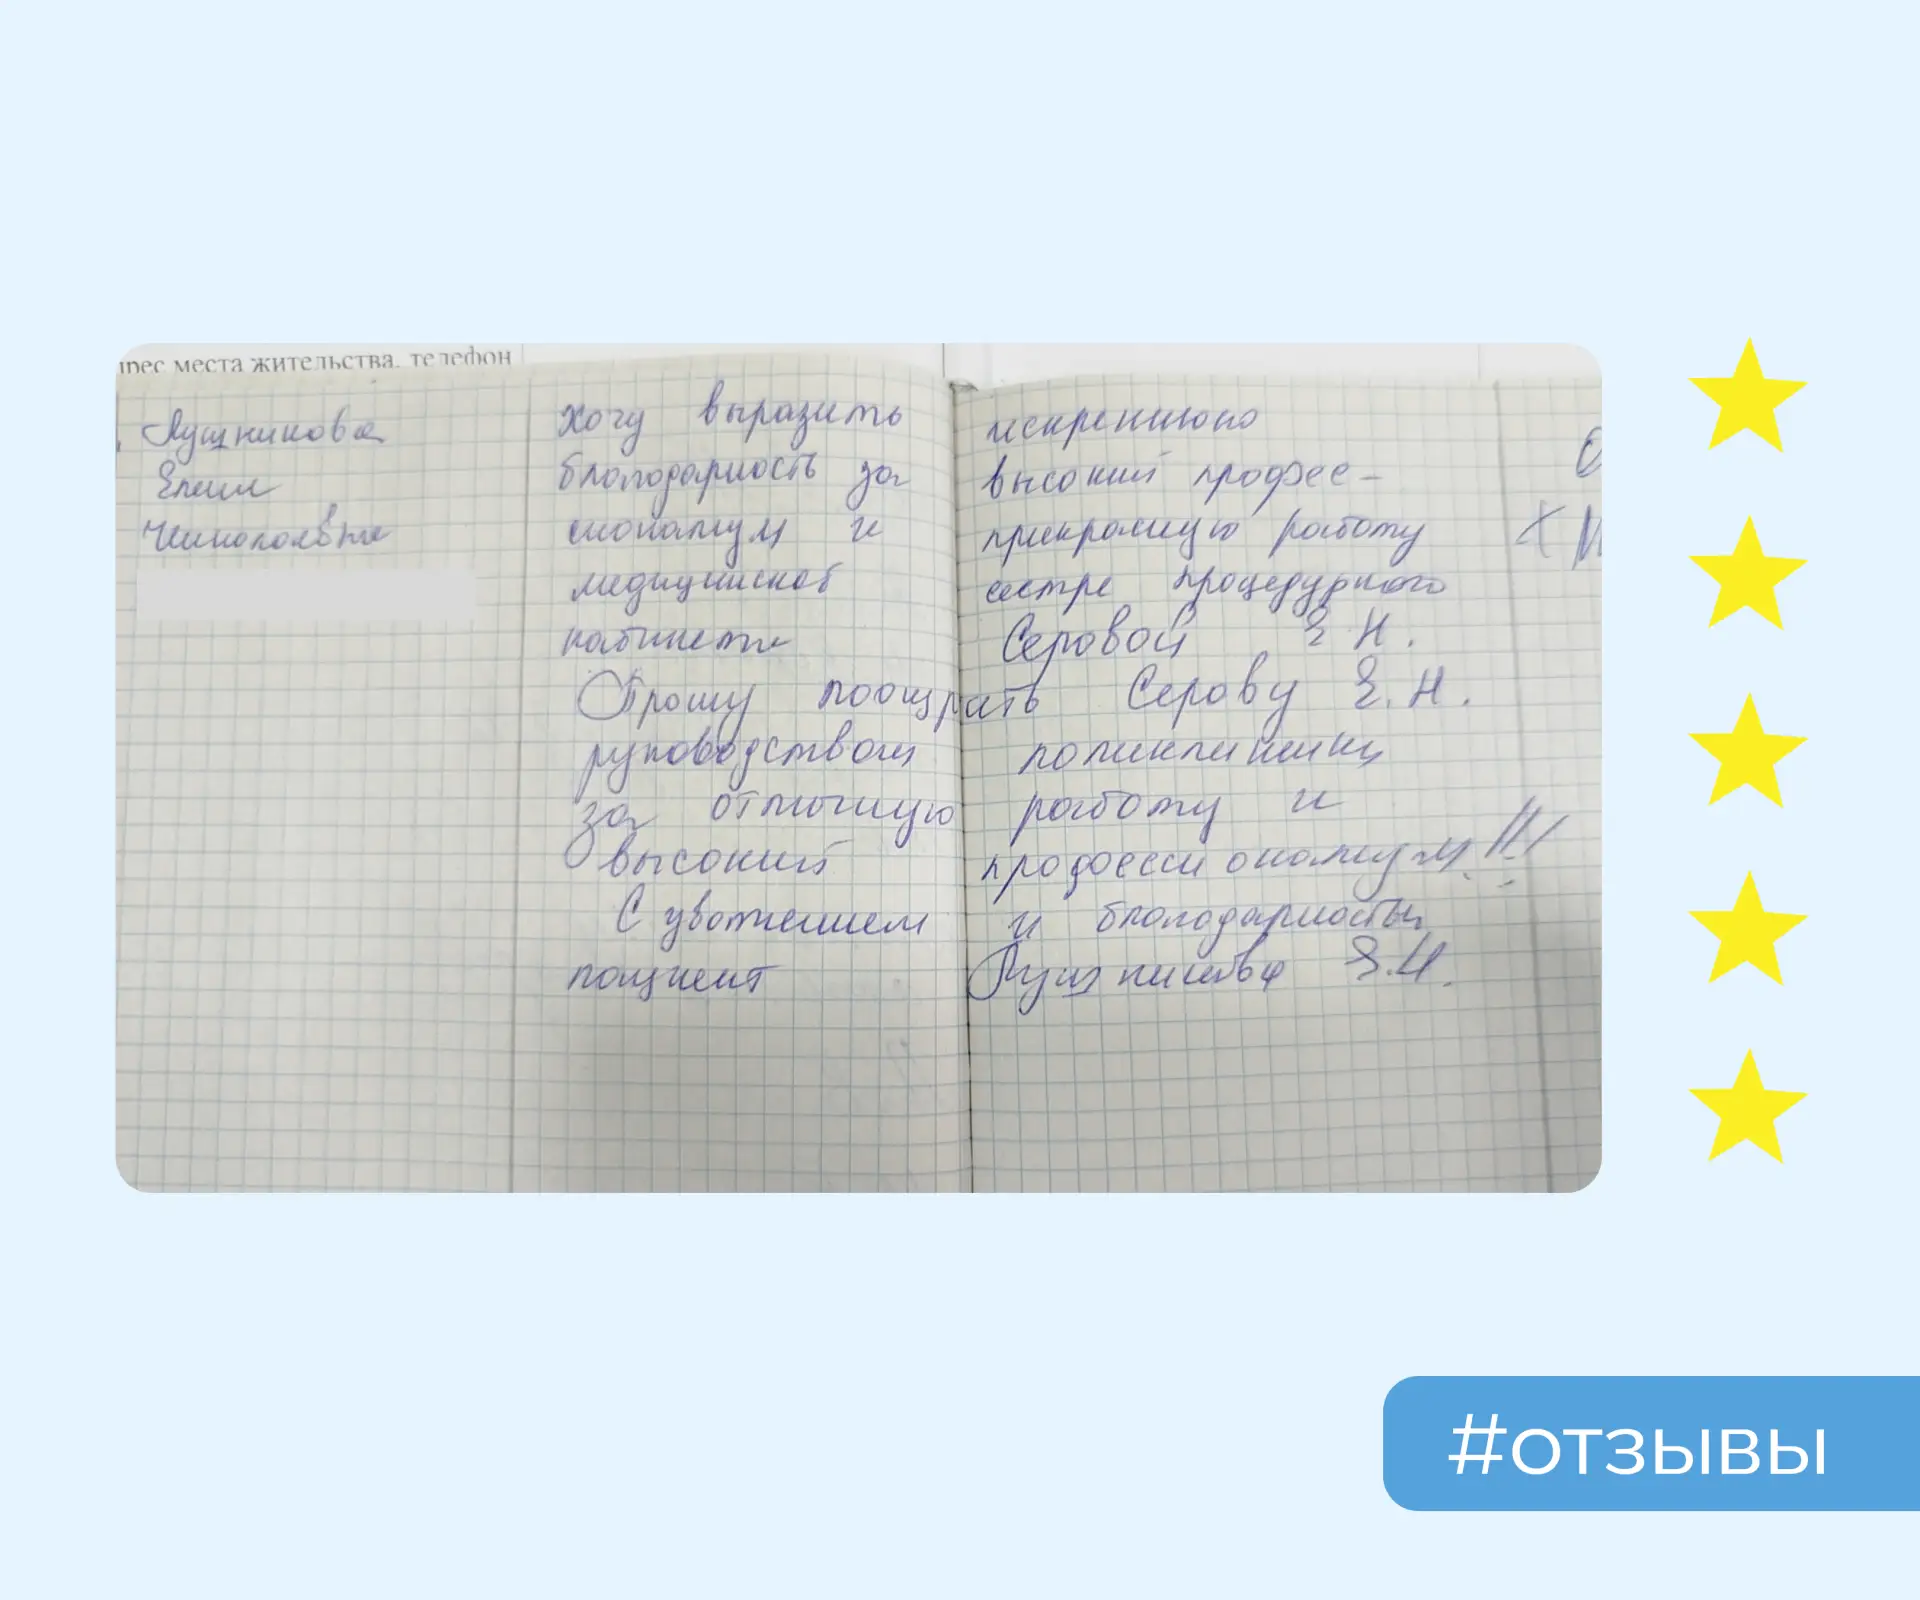 рес места жительства, телефон
Лушникова
Елена
Хочу выразить искреннюю
благодарность за высокий профес-
сионализм и прикрасную работу
медицинской сестре процедурного
кабинета Серовой Е Н.
Прошу поощрать Серову Е. Н.
руководством поликлиники
за отличную работу и
высокий профессионализм!!!
С уважением и благодарностью
пациент Лушникова Е.Н.
#ОТЗЫВЫ